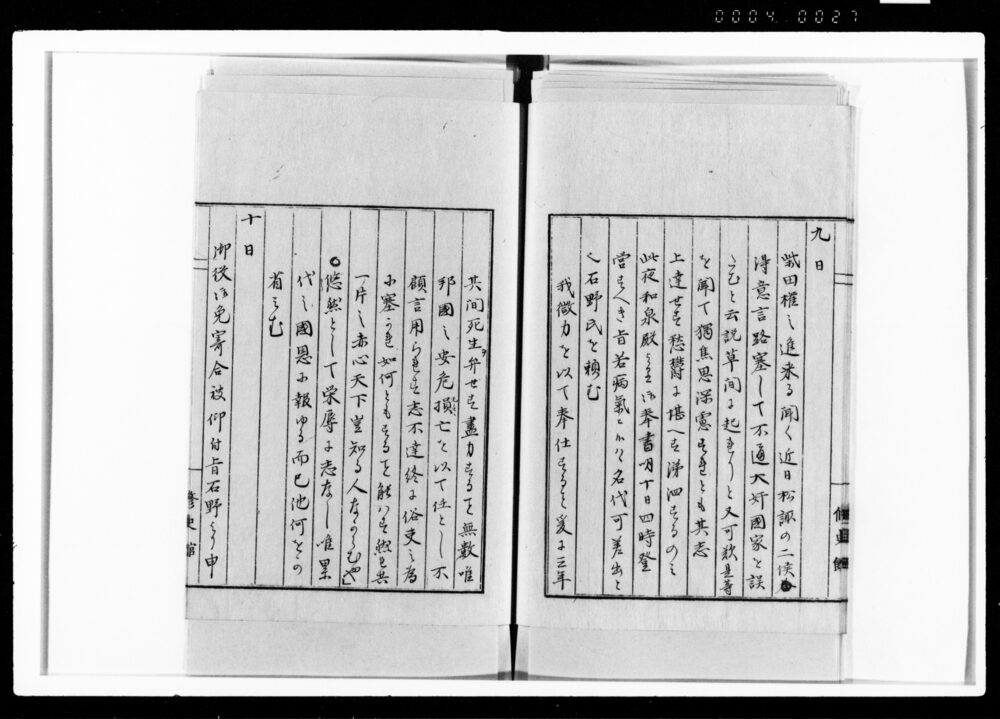 0004 0027
九日
柴田權之進来る聞く近日松諏の二侯
得意言路塞して不通大奸國家を誤
らむと云説草間に起れりと又可歎是等
を聞て獨焦思深慮すれとも其志
上達せす愁欝に堪へす涕泗するのミ
此夜和泉殿より御奉書明十日四時登
營すへき旨若病氣ニ候ハヽ名代可差出と
〻石野氏を頼む
我微力を以て奉仕すること爰に三年
修史館
其間死生を弁せす盡力すること無數唯
邦國之安危損亡を以て任とし不
顧言用られす志不達終に俗吏之為
に塞かれ如何ともすること能ハす然れ共
一片之赤心天下豈知る人なからむや
悠然として栄辱に志なし唯累
代之國恩に報ゆる而已他何をか
省ミむ
十日
御役御免寄合被仰付旨石野より申
修史館